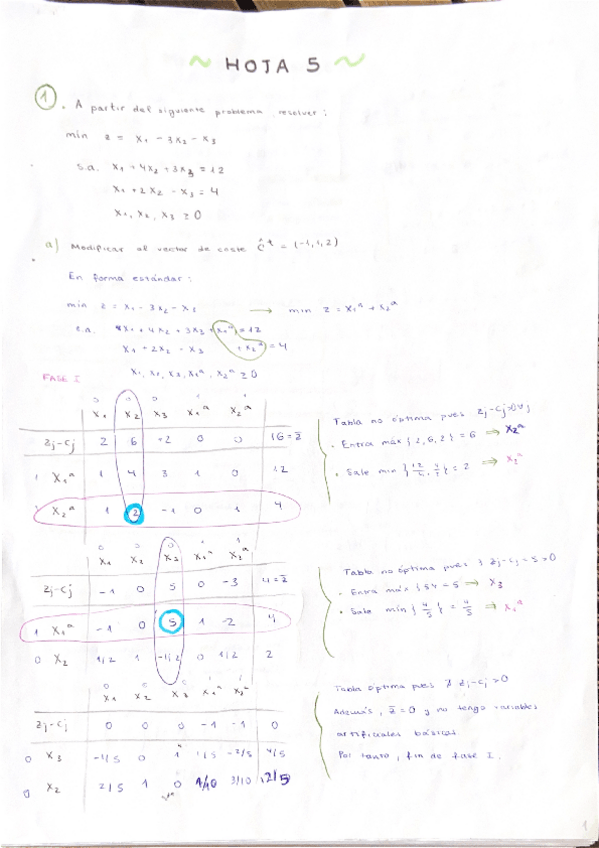 ~ HOJA 5 ~
1. A partir del siguiente problema, resolver:
min z = x₁ - 3x₂ - x₃
s.a. x₁ + 4x₂ + 3x₃ = 12
x₁ + 2x₂ - x₃ = 4
x₁, x₂, x₃ ≥ 0
a) Modificar el vector de coste ĉᵗ = (-1,1,2)
En forma estándar:
min z = x₁ - 3x₂ - x₂ → min z = x₁ᵃ + x₂ᵃ
s.a. x₁ + 4x₂ + 3x₃ + x₁ᵃ = 12
x₁ + 2x₂ - x₃ + x₂ᵃ = 4
x₁, x₂, x₃, x₁ᵃ, x₂ᵃ ≥ 0
FASE I
0 0 0 1 1
x₁ x₂ x₃ x₁ᵃ x₂ᵃ
zj-cj 2 6 +2 0 0 16 = z̄
1 x₁ᵃ 1 4 3 1 0 12
1 x₂ᵃ 1 2 -1 0 1 4
Tabla no óptima pues zj-cj > 0 ∀j
· Entra máx {2, 6, 2} = 6 ⇒ x₂ᵃ
· Sale min {12/4, 4/2} = 2 ⇒ x₂ᵃ
0 0 0 1 1
x₁ x₂ x₃ x₁ᵃ x₂ᵃ
zj-cj -1 0 5 0 -3 4 = z̄
1 x₁ᵃ -1 0 5 1 -2 4
0 x₂ 1/2 1 -1/2 0 1/2 2
Tabla no óptima pues ∃ zj-cj = 5 > 0
· Entra máx {5} = 5 ⇒ x₃
· Sale mín {4/5} = 4/5 ⇒ x₁ᵃ
0 0 0 1 1
x₁ x₂ x₃ x₁ᵃ x₂ᵃ
zj-cj 0 0 0 -1 -1 0
0 x₃ -1/5 0 1 1/5 -2/5 4/5
0 x₂ 2/5 1 0 1/10 3/10 12/5
Tabla óptima pues ∄ zj-cj > 0
Además, z̄ = 0 y no tengo variables
artificiales básicas.
Por tanto, fin de fase I.
1